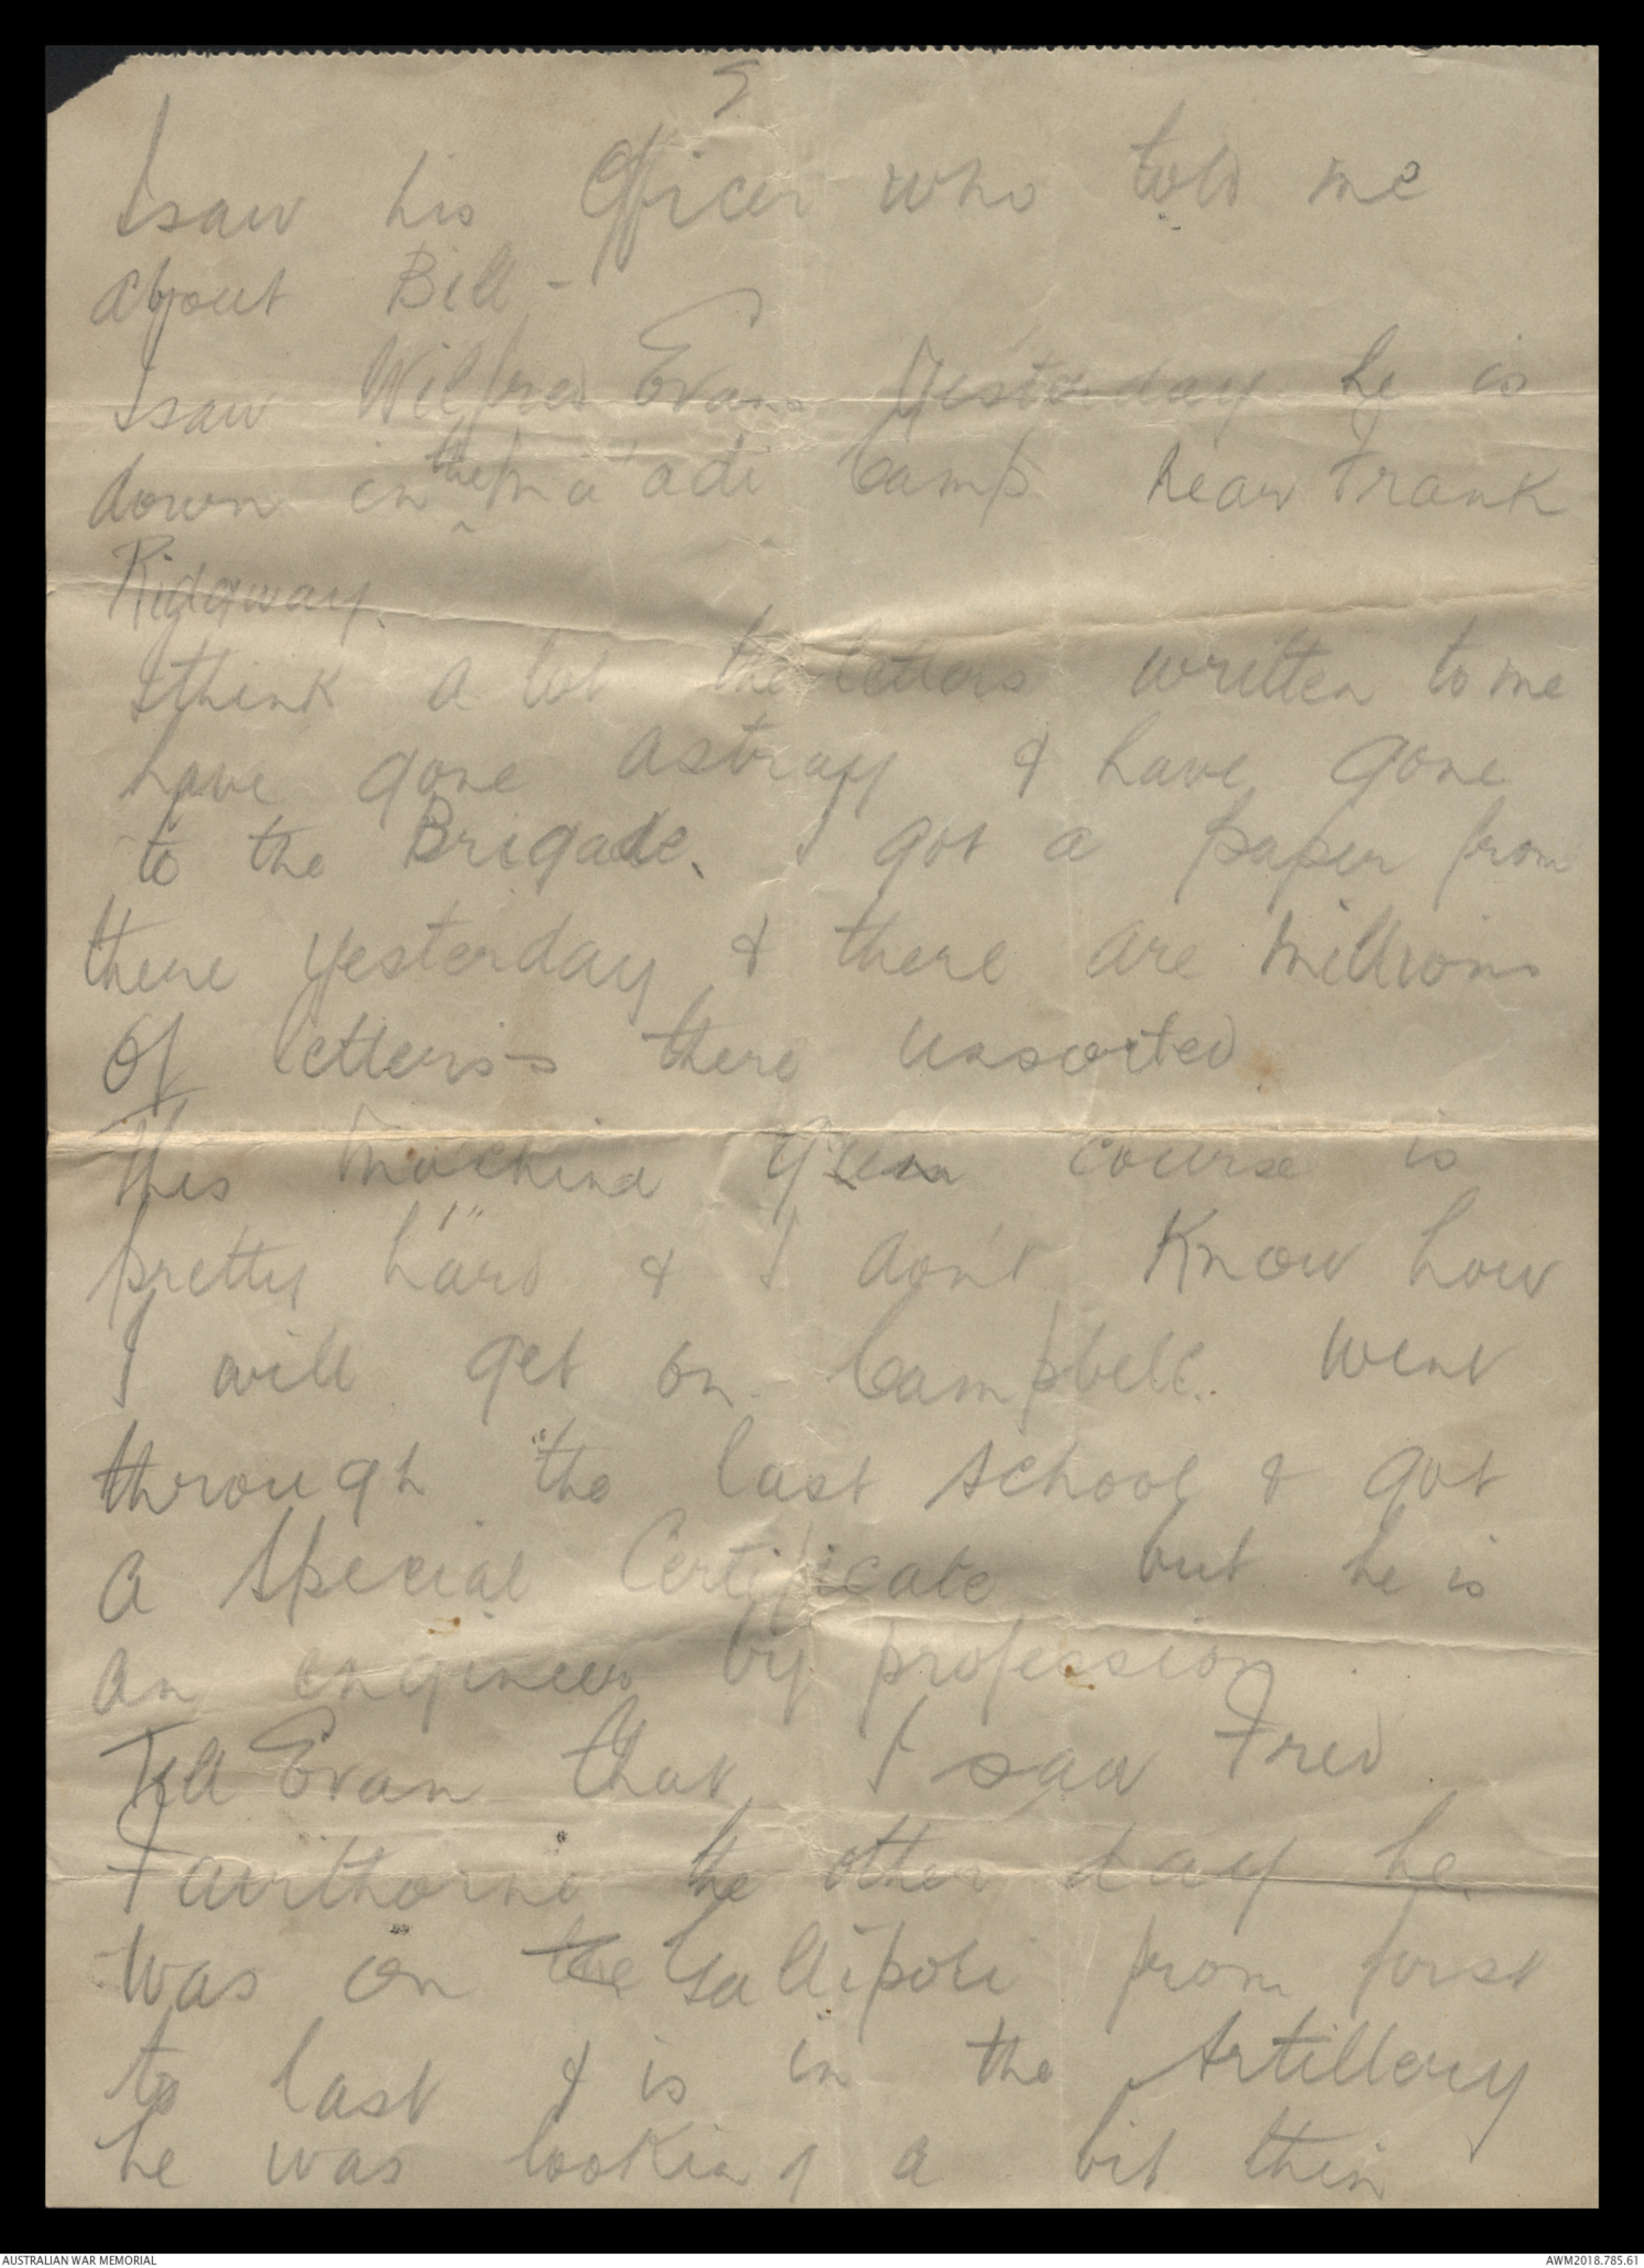 5
I saw his Officer who told me
about Bill -
I saw Wilfred Evans Yesterday he is
down in the Ma'adi Camp near Frank
Ridgway.
I think a lot the letters written to me
have gone astray & have gone
to the Brigade. I got a paper from
there yesterday & there are millions
of letters there unsorted.
This Machine Gun course is
pretty hard & I don't Know how
I will get on. Campbell. went
through the last school & got
a Special Certificate but he is
an engineer by profession.
Tell Evan that I saw Fred
Fairthorne the other day he
was on the Gallipoli from first
to last & is in the Artillery
he was looking a bit thin
AUSTRALIAN WAR MEMORIAL
AWM2018.785.61